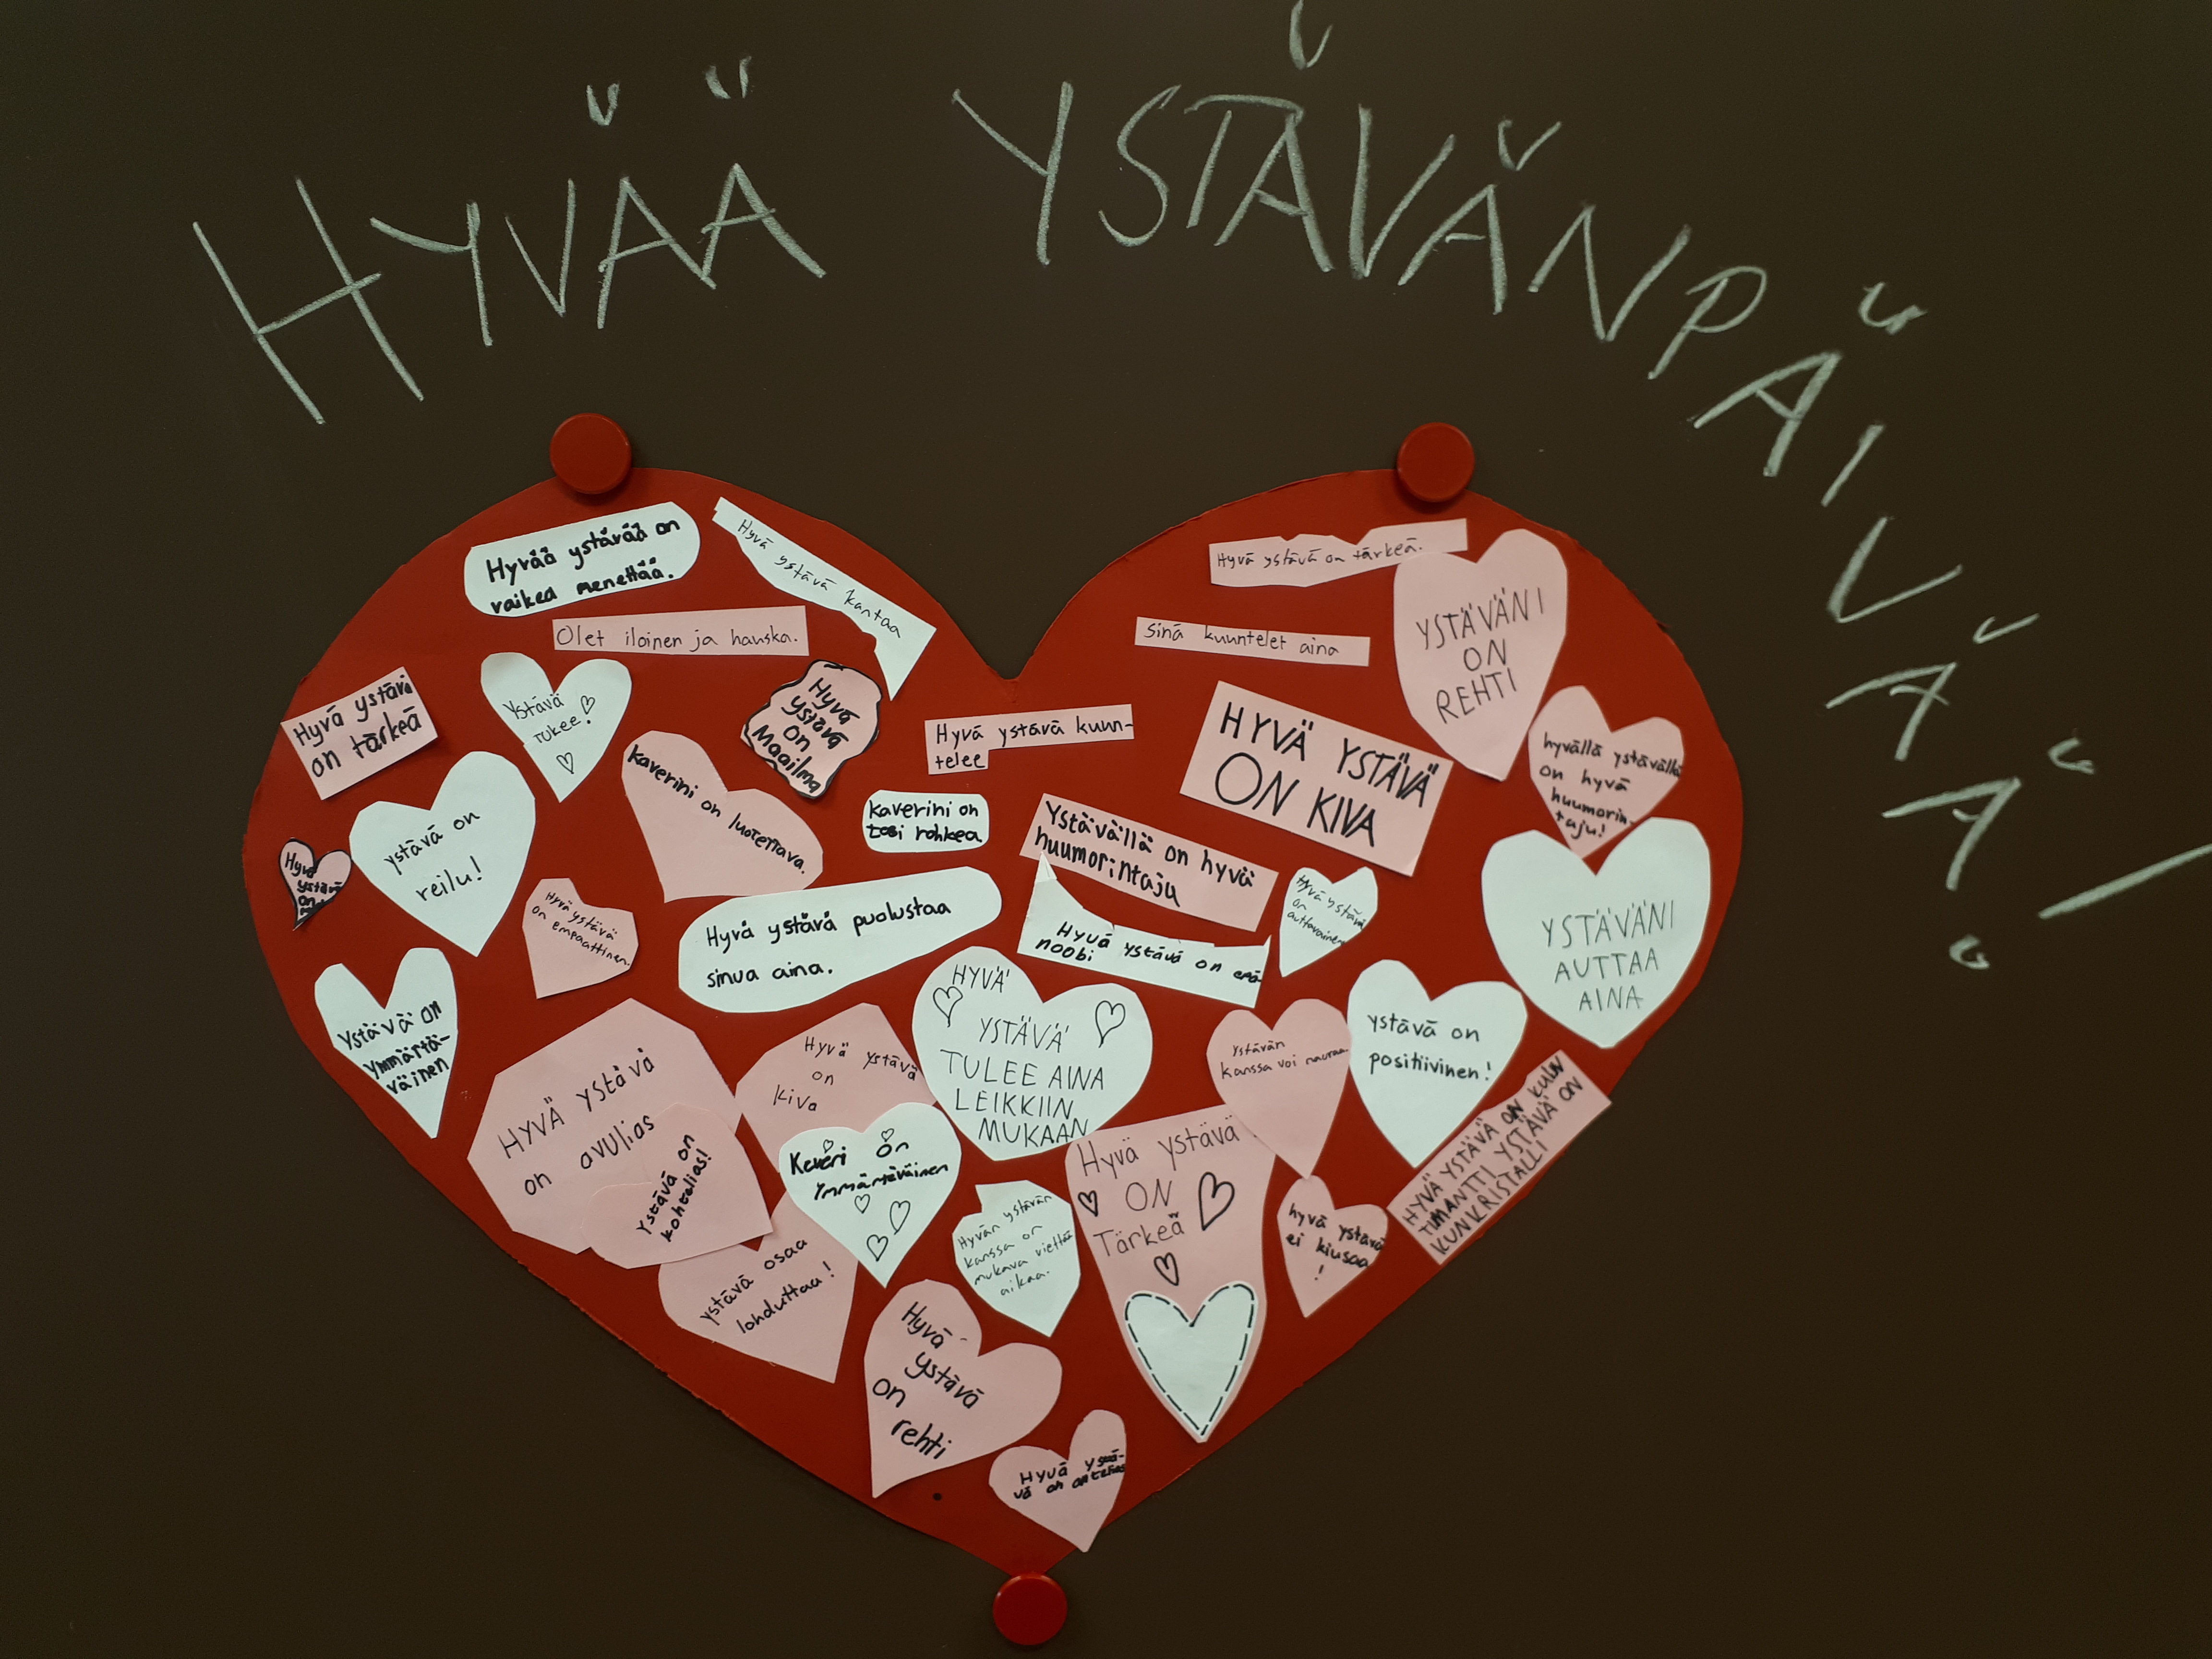 HYVÄÄ YSTÄVÄNPÄIVÄÄ!
Hyvää ystävää on
vaikea menettää.
Hyvä ystävä kantaa
Hyvä ystävä on tärkeä.
Olet iloinen ja hauska.
Sinä kuuntelet aina
YSTÄVÄNI
ON
REHTI
Hyvä ystävä
on tärkeä
Ystävä
tukee!
Hyvä
ystävä
on
Maailma
Hyvä ystävä kuun-
telee
HYVÄ YSTÄVÄ
ON KIVA
hyvällä ystävällä
on hyvä
huumorin-
taju!
kaverini on luotettava.
kaverini on
tosi rohkea
Ystävällä on hyvä
huumorintaju
ystävä on
reilu!
Hyvä
ystävä
on
Hyvä ystävä
on empaattinen.
Hyvä ystävä puolustaa
sinua aina.
Hyvä ystävä on epä-
noobi
Hyvä ystävä
on
auttavainen
YSTÄVÄNI
AUTTAA
AINA
Ystävä on
Ymmärtä-
väinen
HYVÄ ystävä
on avulias
Hyvä ystävä
on
kiva
HYVÄ
YSTÄVÄ
TULEE AINA
LEIKKIIN
MUKAAN
Ystävän
kanssa voi nauraa
ystävä on
positiivinen!
HYVÄ YSTÄVÄ ON KUIN
TIMANTTI YSTÄVÄ ON
KUNKRISTALLI
ystävä on
kohtelias!
Keveri on
Ymmärtäväinen
Hyvän ystävän
kanssa on
mukava viettää
aikaa.
Hyvä ystävä
ON
Tärkeä
hyvä ystävä
ei kiusaa
!
ystävä osaa
lohduttaa!
Hyvä
ystävä
on
rehti
Hyvä ystä-
vä on